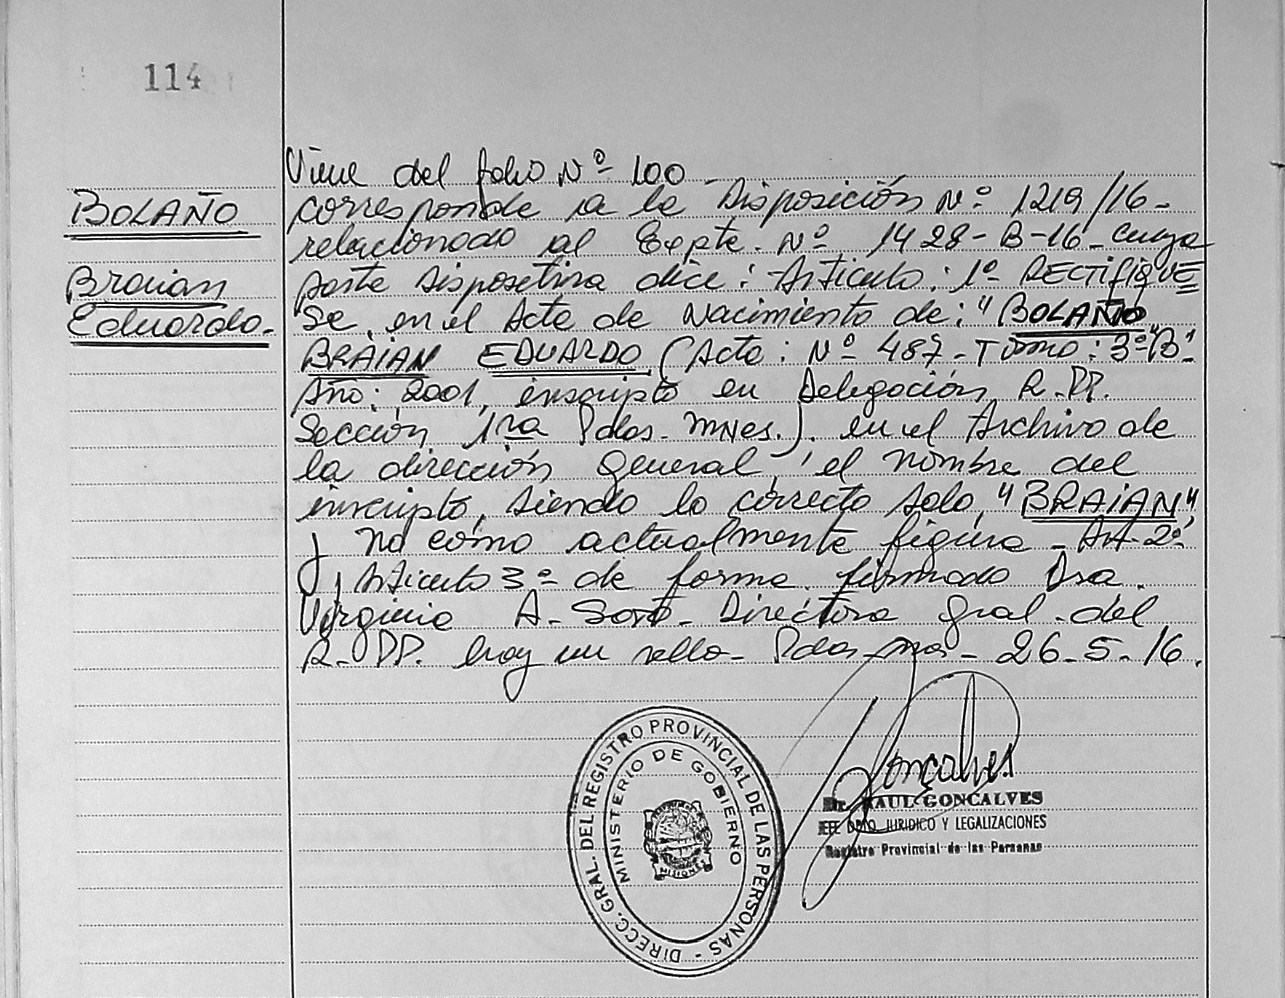 114
BOLAÑO
Braian
Eduardo.
Viene del folio Nº 100 -
corresponde a la Disposición Nº 1219/16-
relacionado al Expte. Nº 1428-B-16- cuya
parte dispositiva dice: Articulo: 1º RECTIFIQUE
se, en el Acta de Nacimiento de: "BOLAÑO
BRAIAN EDUARDO (Acta: Nº 487- Tomo: 3º "B"
Año: 2001, inscripto en Delegación R.PP.
Sección 1ra Pdas. Mnes.). en el Archivo de
la dirección general, el nombre del
inscripto, siendo lo correcto solo, "BRAIAN",
y no como actualmente figura - Art. 2º
y Articulo 3º de forma. firmado Dra.
Virginia A. Soto- Directora Gral. del
R. PP. hay un sello- Pdas- Mnes- 26-5-16.
DIRECC. GRAL. DEL REGISTRO PROVINCIAL DE LAS PERSONAS -
MINISTERIO DE GOBIERNO
MISIONES
Goncalves
Dr. RAUL GONCALVES
JEFE DPTO JURIDICO Y LEGALIZACIONES
Registro Provincial de las Personas